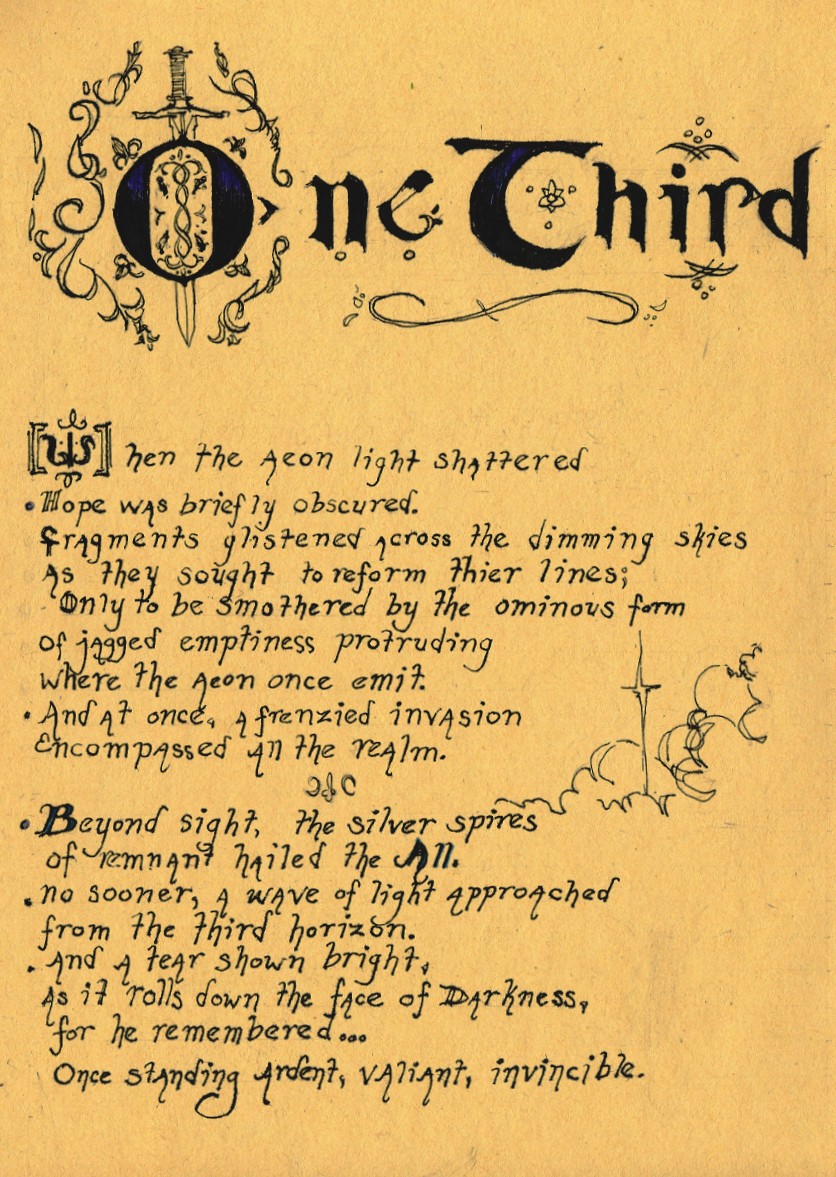 One Third
When the Aeon light shattered
Hope was briefly obscured.
Fragments glistened across the dimming skies
As they sought to reform thier lines;
Only to be smothered by the ominous form
of jagged emptiness protruding
where the Aeon once emit.
And at once, a frenzied invasion
Encompassed all the realm.
Beyond sight, the silver spires
of remnant hailed the All.
no sooner, a wave of light approached
from the third horizon.
And a tear shown bright,
As it rolls down the face of Darkness,
for he remembered...
Once standing Ardent, valiant, invincible.